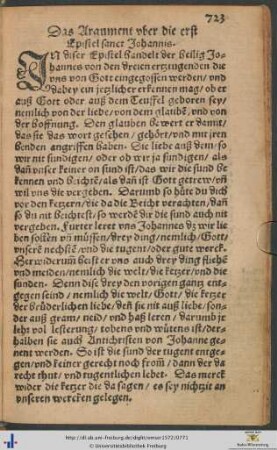 723
Das Argument vber die erst
Epistel sanct Johannis.
IN diser Epistel handelt der heilig Jo-
hannes von den dreien ertztugenden die
vns von Gott eingegossen werden/ vnd
dabey ein jetzlicher erkennen mag/ ob er
auß Gott oder auß dem Teuffel geboren sey/
nemlich von der liebe/ von dem glaubē, vnd von
der hoffnung. Den glauben bewert er damit/
das sie das wort gesehen/ gehört/ vnd mit jren
henden angriffen haben. Die liebe auß dem/ so
wir nit sündigen/ oder ob wir ja sündigen/ als
dañ vnser keiner on sünd ist/ das wir die sünd be
kennen vnd Beichtē, als dañ ist Gott getrew/ vñ
wil vns die vergeben. Darumb so hüte du dich
vor den ketzern/ die da die Beicht verachten/ dañ
so du nit Beichtest/ so werdē dir die sünd auch nit
vergeben. Fürter leret vns Johannes dz wir lie
ben sollen vñ müssen/ drey ding/ nemlich/ Gott/
vnsere nechstē, vnd die tugent/ oder gute werck.
Herwiderumb heist er vns auch drey ding fliehē
vnd meiden/ nemlich die welt/ die ketzer/ vnd die
sünden. Denn dise drey den vorigen gantz ent-
gegen seind/ nemlich die welt/ Gott/ die ketzer
der brüderlichen liebe/ dañ sie nit auß liebe/ son-
der auß gram/ neid/ vnd haß leren/ darumb jr
lehr vol lesterung/ tobens vnd wütens ist/ der-
halben sie auch Antichristen von Johanne ge-
nent werden. So ist die sünd der tugent entge-
gen/ vnd keiner gerecht noch from/ dann der da
recht thut/ vnd tugentlichen lebet. Das merck
wider die ketzer die da sagen/ es sey nichtz it an
vnseren wercken gelegen.
http://dl.ub.uni-freiburg.de/diglit/emser1572/0771
© Universitätsbibliothek Freiburg